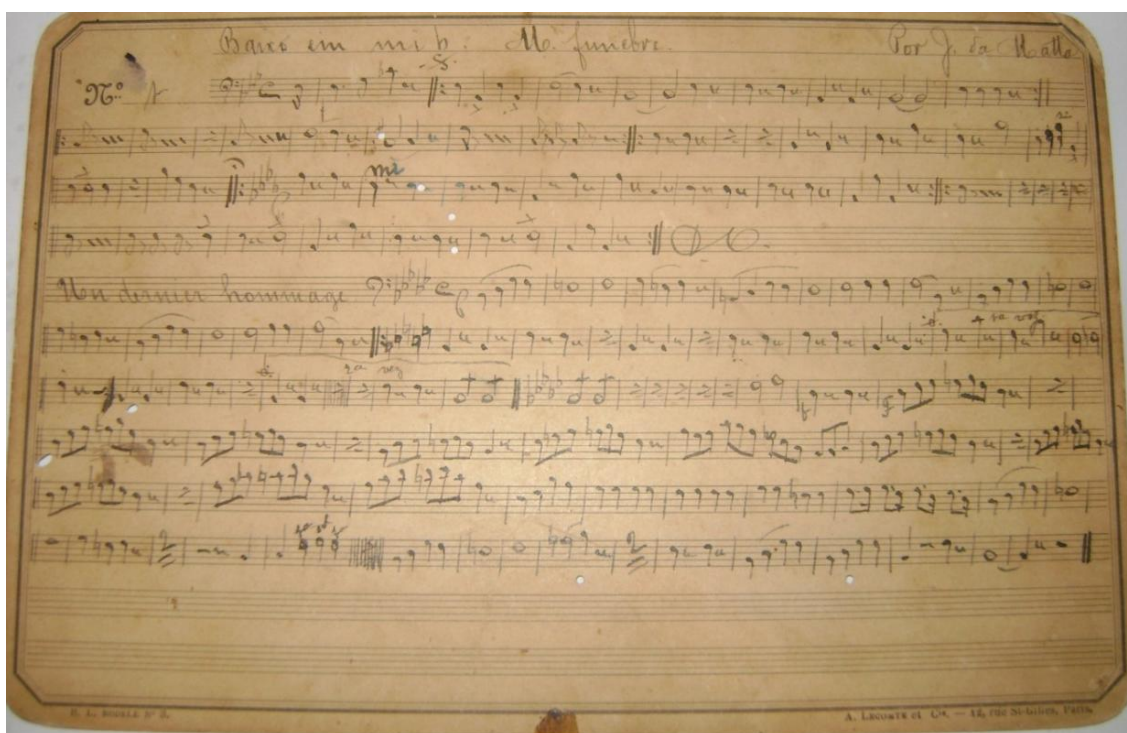 Baixo em mi b. M. funebre. Por J. da Matta
Nº 1
mi
Un dernier hommage
1ª vez
2ª vez
A. LECOMTE et Cie. — 12, rue St-Gilles, Paris.